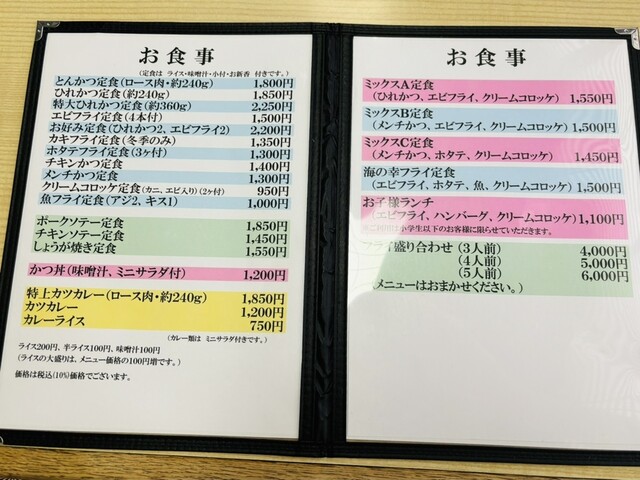 お食事
(定食は ライス・味噌汁・小付・お新香 付きです。)
とんかつ定食(ロース肉・約240g) 1,800円
ひれかつ定食(約240g) 1,850円
特大ひれかつ定食(約360g) 2,250円
エビフライ定食(4本付) 1,500円
お好み定食(ひれかつ2、エビフライ2) 2,200円
カキフライ定食(冬季のみ) 1,350円
ホタテフライ定食(3ヶ付) 1,300円
チキンかつ定食 1,400円
メンチかつ定食 1,300円
クリームコロッケ定食(カニ、エビ入り)(2ヶ付) 950円
魚フライ定食(アジ2、キス1) 1,000円
ポークソテー定食 1,850円
チキンソテー定食 1,450円
しょうが焼き定食 1,550円
かつ丼(味噌汁、ミニサラダ付) 1,200円
特上カツカレー(ロース肉・約240g) 1,850円
カツカレー 1,200円
カレーライス 750円
(カレー類は ミニサラダ付きです。)
ライス200円、半ライス100円、味噌汁100円
(ライスの大盛りは、メニュー価格の100円増です。)
価格は税込(10%)価格でございます。
お食事
ミックスA定食
(ひれかつ、エビフライ、クリームコロッケ) 1,550円
ミックスB定食
(メンチかつ、エビフライ、クリームコロッケ) 1,500円
ミックスC定食
(メンチかつ、ホタテ、クリームコロッケ) 1,450円
海の幸フライ定食
(エビフライ、ホタテ、魚、クリームコロッケ) 1,500円
お子様ランチ
(エビフライ、ハンバーグ、クリームコロッケ) 1,100円
※ご利用は小学生以下のお客様に限らせていただきます。
フライ盛り合わせ (3人前) 4,000円
(4人前) 5,000円
(5人前) 6,000円
(メニューはおまかせください。)